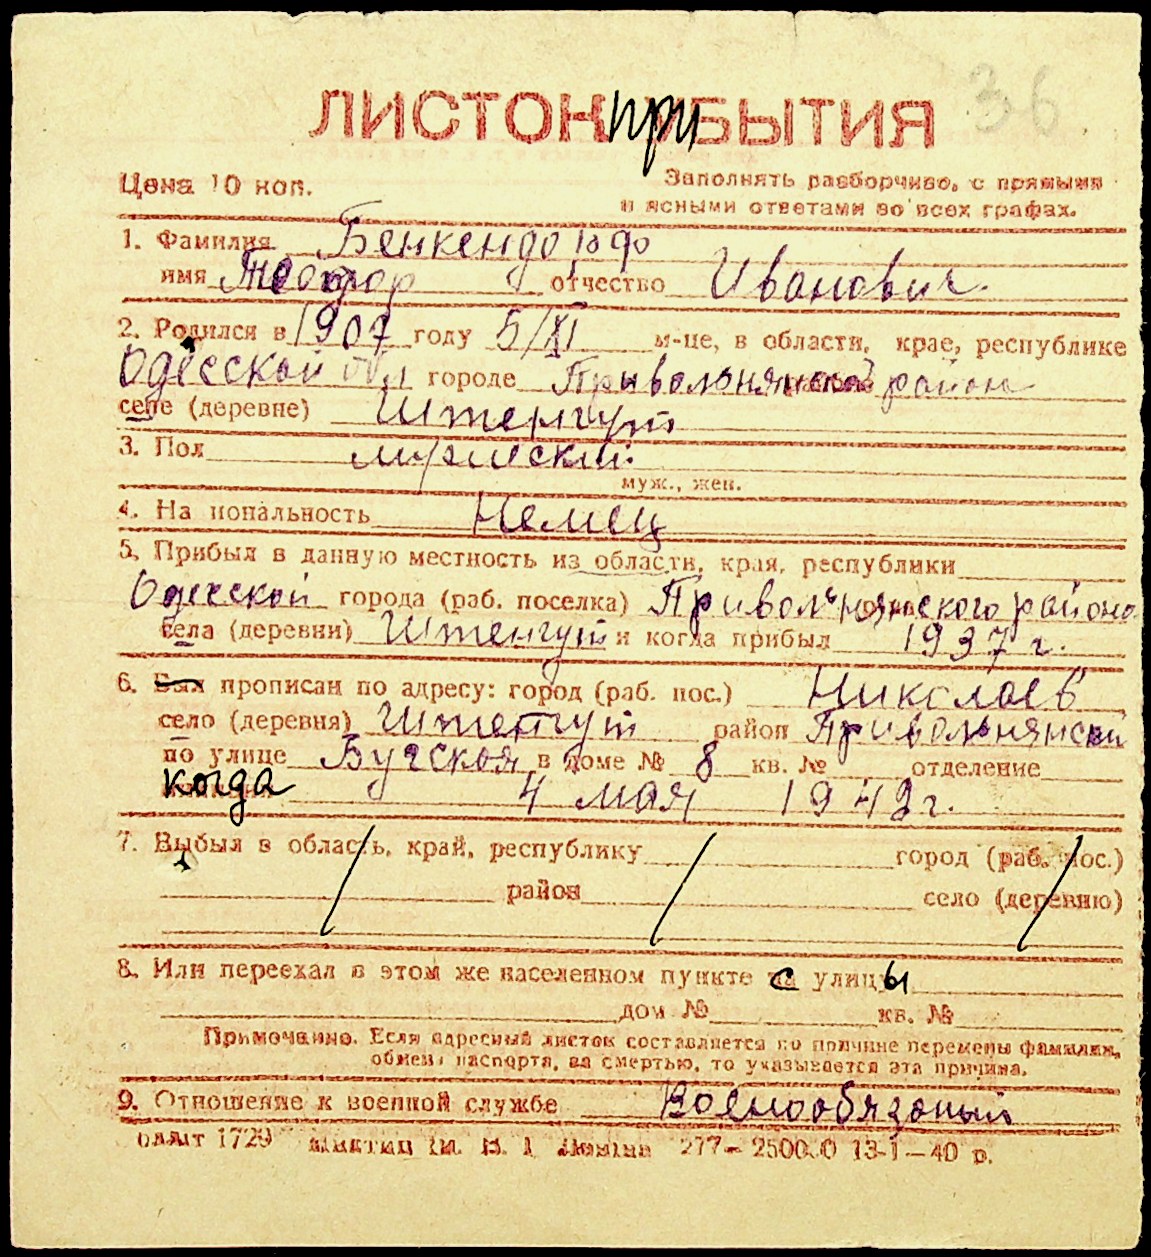 36
ЛИСТОК прИБЫТИЯ
Цена 10 коп.
Заполнять разборчиво, с прямыми
и ясными ответами во всех графах.
1. Фамилия Бенкендорф
имя Теодор отчество Иванович
2. Родился в 1907 году 5/XI м-це, в области, крае, республике
Одесской обл городе Привольнянский район
селе (деревне) Штенгут
3. Пол мужский
муж., жен.
4. На иональность Немец
5. Прибыл в данную местность из области, края, республики
Одесской города (раб. поселка) Привольнянского района
села (деревни) Штенгут и когда прибыл 1937 г.
6. Был прописан по адресу: город (раб. пос.) Николаев
село (деревня) Штенгут район Привольнянский
по улице Бугская в доме № 8 кв. № отделение
когда 4 мая 1942 г.
7. Выбыл в область, край, республику город (раб. пос.)
район село (деревню)
8. Или переехал в этом же населенном пункте с улицы
дом № кв. №
Примечание. Если адресный листок составляется по причине перемены фамилии,
обмена паспорта, за смертью, то указывается эта причина.
9. Отношение к военной службе Военообязаный
1729 277—250000 13-1—40 р.